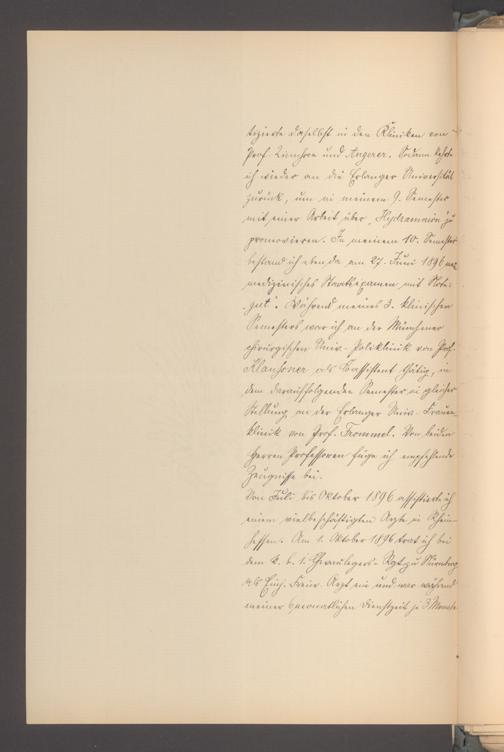 tizierte daselbst in den Kliniken von
Prof. Ziemssen und Angerer. Sodann kehrte
ich wieder an die Erlanger Universität
zurück, um in meinem 9. Semester
mit einer Arbeit über „Hydramnion" zu
promovieren. In meinem 10. Semester
bestand ich eben da am 27. Juni 1896 mein
medizinisches Staatsexamen mit Note
„gut". Während meines 3. klinischen
Semesters war ich an der Münchener
chirurgischen Univ.-Poliklinik von Prof.
Klaussner als Coassistent thätig, in
dem darauffolgenden Semester in gleicher
Stellung an der Erlanger Univ.-Frauen
klinik von Prof. Frommel. Von beiden
Herren Professoren füge ich empfehlende
Zeugnisse bei.
Von Juli bis Oktober 1896 assistierte ich
einem vielbeschäftigten Arzte in Rhein-
hessen. Am 1. Oktober 1896 trat ich bei
dem k. b. 1. Chevaulegers-Rgt. zu Nürnberg
als Einj. Freiw. Arzt ein und war während
meiner 6monatlichen Dienstzeit je 3 Monate